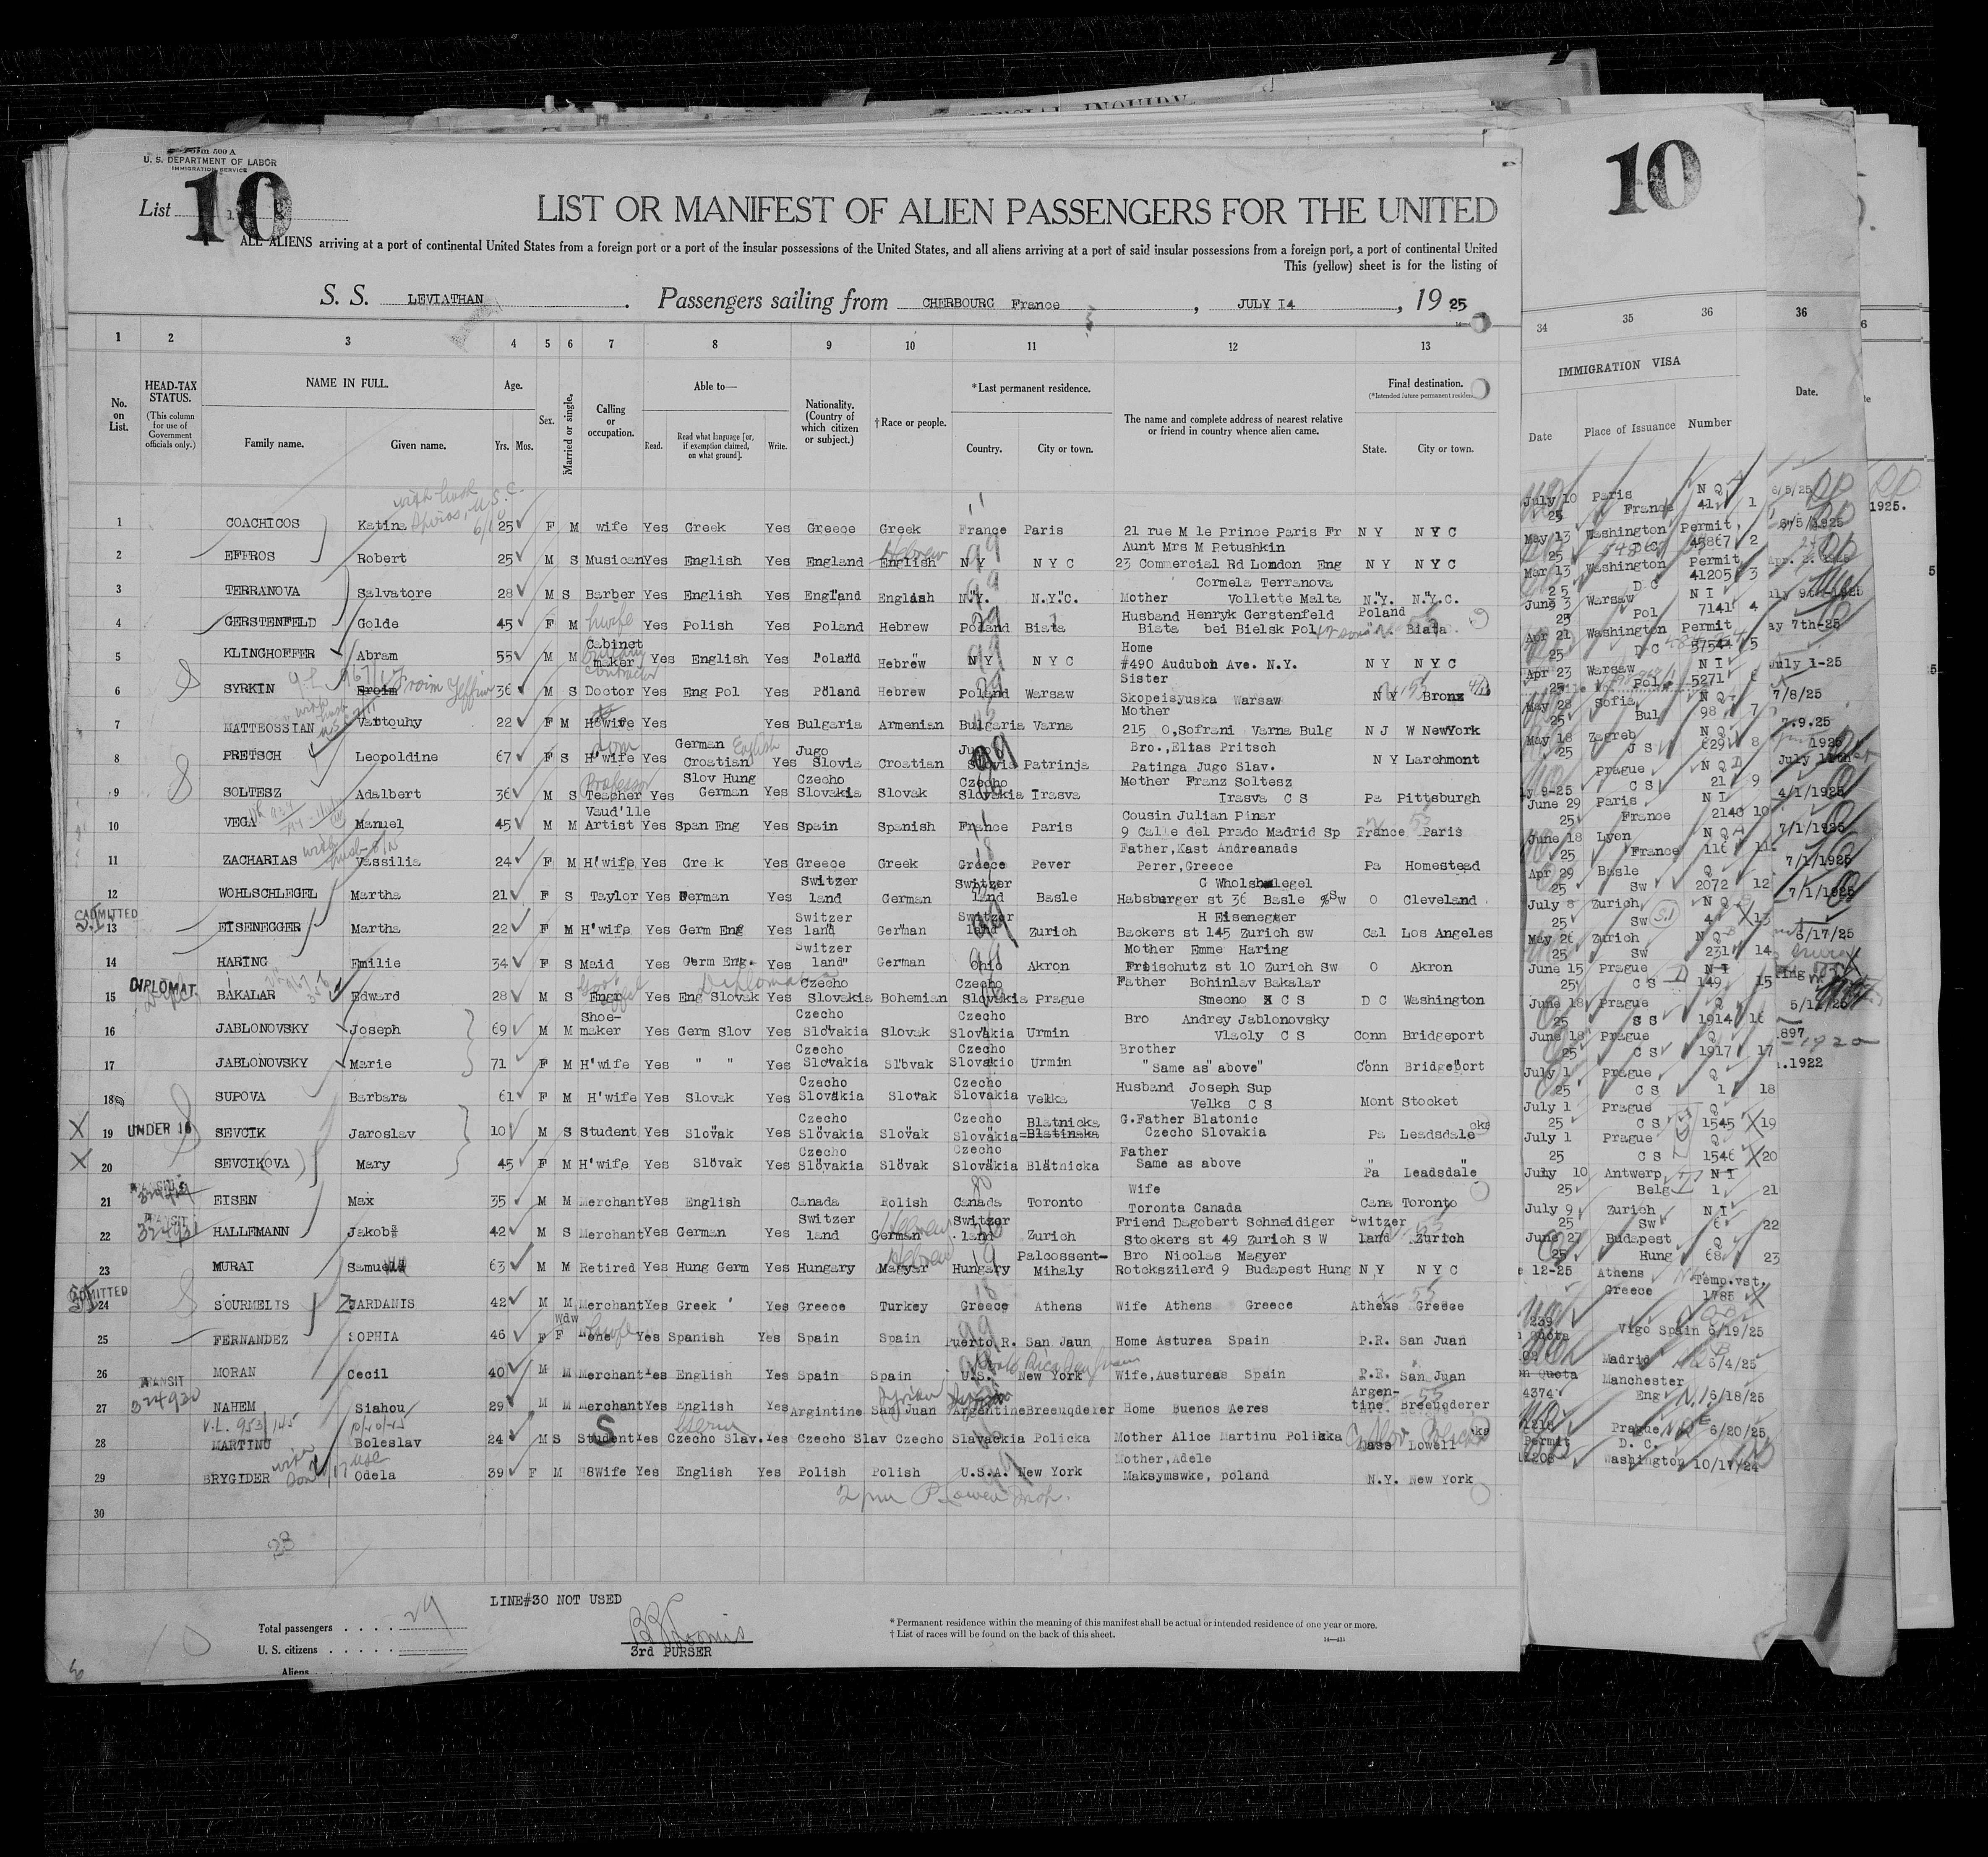 SPECIAL INQUIRY
Form 500 A
U. S. DEPARTMENT OF LABOR
IMMIGRATION SERVICE
List 10
10
LIST OR MANIFEST OF ALIEN PASSENGERS FOR THE UNITED
ALL ALIENS arriving at a port of continental United States from a foreign port or a port of the insular possessions of the United States, and all aliens arriving at a port of said insular possessions from a foreign port, a port of continental United
This (yellow) sheet is for the listing of
S. S. LEVIATHAN. Passengers sailing from CHERBOURG France, JULY I4, 1925
1 2 3 4 5 6 7 8 9 10 11 12 13 34 35 36
No. on List.
HEAD-TAX STATUS. (This column for use of Government officials only.)
NAME IN FULL. Family name. Given name.
Age. Yrs. Mos.
Sex.
Married or single.
Calling or occupation.
Able to— Read. Read what language [or, if exemption claimed, on what ground]. Write.
Nationality. (Country of which citizen or subject.)
†Race or people.
*Last permanent residence. Country. City or town.
The name and complete address of nearest relative or friend in country whence alien came.
Final destination. (*Intended future permanent residence) State. City or town.
IMMIGRATION VISA
Date Place of Issuance Number
Date.
1 COACHICOS Katina 25 F M wife Yes Greek Yes Greece Greek France Paris 21 rue M le Prince Paris Fr N Y N Y C July 10 25 Paris France N Q 41 1
2 EFFROS Robert 25 M S Musican Yes English Yes England English Hebrew N Y N Y C Aunt Mrs M Petushkin 23 Commercial Rd London Eng N Y N Y C May 13 25 Washington D C Permit 45867 2
3 TERRANOVA Salvatore 28 M S Barber Yes English Yes England English N.Y. N.Y.C. Cormela Terranova Mother Vollette Malta N.Y. N.Y.C. Mar 13 25 Washington D C Permit 41205 3
4 GERSTENFELD Golde 45 F M Yes Polish Yes Poland Hebrew Poland Biata Husband Henryk Gerstenfeld Biata bei Bielsk Pol Poland Biata June 3 Warsaw Pol N I 7141 4
5 KLINGHOFFER Abram 55 M M Cabinet maker Yes English Yes Poland Hebrew N Y N Y C Home #490 Audubon Ave. N.Y. N Y N Y C Apr 21 25 Washington D C Permit 37544 5
6 SYRKIN Froim 36 M S Doctor Yes Eng Pol Yes Poland Hebrew Poland Warsaw Sister Skopeisyuska Warsaw N Y Bronx Apr 23 25 Warsaw Pol N I 5271 6
7 MATTEOSSIAN Vartouhy 22 F M H'wife Yes Yes Bulgaria Armenian Bulgaria Varna Mother 215 O,Sofrani Varna Bulg N J W NewYork May 28 25 Sofia Bul N Q 98 7
8 PRETSCH Leopoldine 67 F S H'wife Yes German Croatian English Yes Jugo Slovia Croatian Jugo Slovia Patrinja Bro.,Elias Pritsch Patinga Jugo Slav. N Y Larchmont May 18 25 Zagreb J S N Q 629 8
9 SOLTESZ Adalbert 36 M S Teacher Professor Yes Slov Hung German Yes Czecho Slovakia Slovak Czecho Slovakia Irasva Mother Franz Soltesz Irasva C S Pa Pittsburgh Prague C S N Q 21 9
10 VEGA Manuel 45 M M Vaud'lle Artist Yes Span Eng Yes Spain Spanish France Paris Cousin Julian Pinar 9 Calle del Prado Madrid Sp France Paris June 29 25 Paris France N I 2140 10
11 ZACHARIAS Vassilia 24 F M H'wife Yes Greek Yes Greece Greek Greece Pever Father,Kast Andreanads Perer,Greece Pa Homestead June 18 25 Lyon France N Q 116 11
12 WOHLSCHLEGEL Martha 21 F S Taylor Yes German Yes Switzer land German Switzer land Basle C Wholshelegel Habsberger st 36 Basle Sw O Cleveland Apr 29 25 Basle Sw Q 2072 12
ADMITTED S.I
13 EISENEGGER Martha 22 F M H'wife Yes Germ Eng Yes Switzer land German Switzer land Zurich H Eisenegger Backers st 145 Zurich sw Cal Los Angeles July 8 25 Zurich Sw N Q 4 X 13
14 HARING Emilie 34 F S Maid Yes Germ Eng. Yes Switzer land German Ohio Akron Mother Emme Haring Freischutz st 10 Zurich Sw O Akron May 26 25 Zurich Sw N Q 231 14
DIPLOMAT
15 BAKALAR Edward 28 M S Engr Yes Eng Slovak Yes Czecho Slovakia Bohemian Czecho Slovakia Prague Father Bohinlav Bakalar Smeono C S D C Washington June 15 25 Prague C S N I 149 15
16 JABLONOVSKY Joseph 69 M M Shoe-maker Yes Germ Slov Yes Czecho Slovakia Slovak Czecho Slovakia Urmin Bro Andrey Jablonovsky Vlacly C S Conn Bridgeport June 18 25 Prague S S Q 1914 16
17 JABLONOVSKY Marie 71 F M H'wife Yes " " Yes Czecho Slovakia Slovak Czecho Slovakio Urmin Brother "Same as above" Conn Bridgeport June 18 25 Prague C S Q 1917 17
18 SUPOVA Barbara 61 F M H'wife Yes Slovak Yes Czecho Slovakia Slovak Czecho Slovakia Velka Husband Joseph Sup Velks C S Mont Stocket July 1 25 Prague C S Q 1 18
X 19 UNDER 16 SEVCIK Jaroslav 10 M S Student Yes Slovak Yes Czecho Slovakia Slovak Czecho Slovakia Blatnicka Blatinska G.Father Blatonic Czecho Slovakia Pa Leadsdale July 1 25 Prague C S Q 1545 X 19
X 20 SEVCIKOVA Mary 45 F M H'wife Yes Slovak Yes Czecho Slovakia Slovak Czecho Slovakia Blatnicka Father Same as above Pa Leadsdale July 1 25 Prague C S Q 1546 X 20
21 EISEN Max 35 M M Merchant Yes English Canada Polish Canada Toronto Wife Toronta Canada Cana Toronto July 10 25 Antwerp Belg N I 1 21
TRANSIT 324931
22 HALLEMANN Jakob 42 M S Merchant Yes German Yes Switzer land German Hebrew Switzer land Zurich Friend Dagobert Schneidiger Stockers st 49 Zurich S W Switzer land Zurich July 9 25 Zurich Sw N I 6 22
23 MURAI Samuel 63 M M Retired Yes Hung Germ Yes Hungary Magyar Hebrew Hungary Palcossent-Mihaly Bro Nicolas Magyer Rotokszilerd 9 Budapest Hung N Y N Y C June 27 25 Budapest Hung Q 68 23
ADMITTED
24 SOURMELIS JARDANIS 42 M M Merchant Yes Greek Yes Greece Turkey Greece Athens Wife Athens Greece Athens Greece 12-25 Athens Greece Temp.vst. 1785
25 FERNANDEZ SOPHIA 46 F Wdw F None Yes Spanish Yes Spain Spain Puerto R. San Jaun Home Asturea Spain P.R. San Juan 239 Quota Vigo Spain 6/19/25
26 MORAN Cecil 40 M M Merchant Yes English Yes Spain Spain U.S. New York Wife,Austureas Spain P.R. San Juan Non Quota Madrid 6/4/25
TRANSIT 324930
27 NAHEM Siahou 29 M M Merchant Yes English Yes Argintine San Juan Syrian Argentine Breeuqderer Home Buenos Aeres Argen-tine Breeuqderer 4374 Manchester Eng N.I 6/18/25
V.L. 953/145
28 MARTINU Boleslav 24 M S Student Yes Czecho Slav. Yes Czecho Slav Czecho Slavackia Policka Mother Alice Martinu Polikka Mass Lowell 1218 Prague 6/20/25
29 BRYGIDER Odela 39 F M H8Wife Yes English Yes Polish Polish U.S.A. New York Mother,Adele Maksymswke, poland N.Y. New York Permit 1208 D. C. Washington 10/17/24
30
28
LINE#30 NOT USED
Total passengers . . . . 29
U. S. citizens . . . . .
Aliens
3rd PURSER
* Permanent residence within the meaning of this manifest shall be actual or intended residence of one year or more.
† List of races will be found on the back of this sheet.
14—431
6/5/25
1925.
6/5/1925
Apr. 2. 1925
ay 7th-25
July 1-25
7/8/25
7.9.25
1925
July 11th
4/1/1925
7/1/1925
7/1/1925
7/1/1925
6/17/25
5/11/25
897
1920
.1922